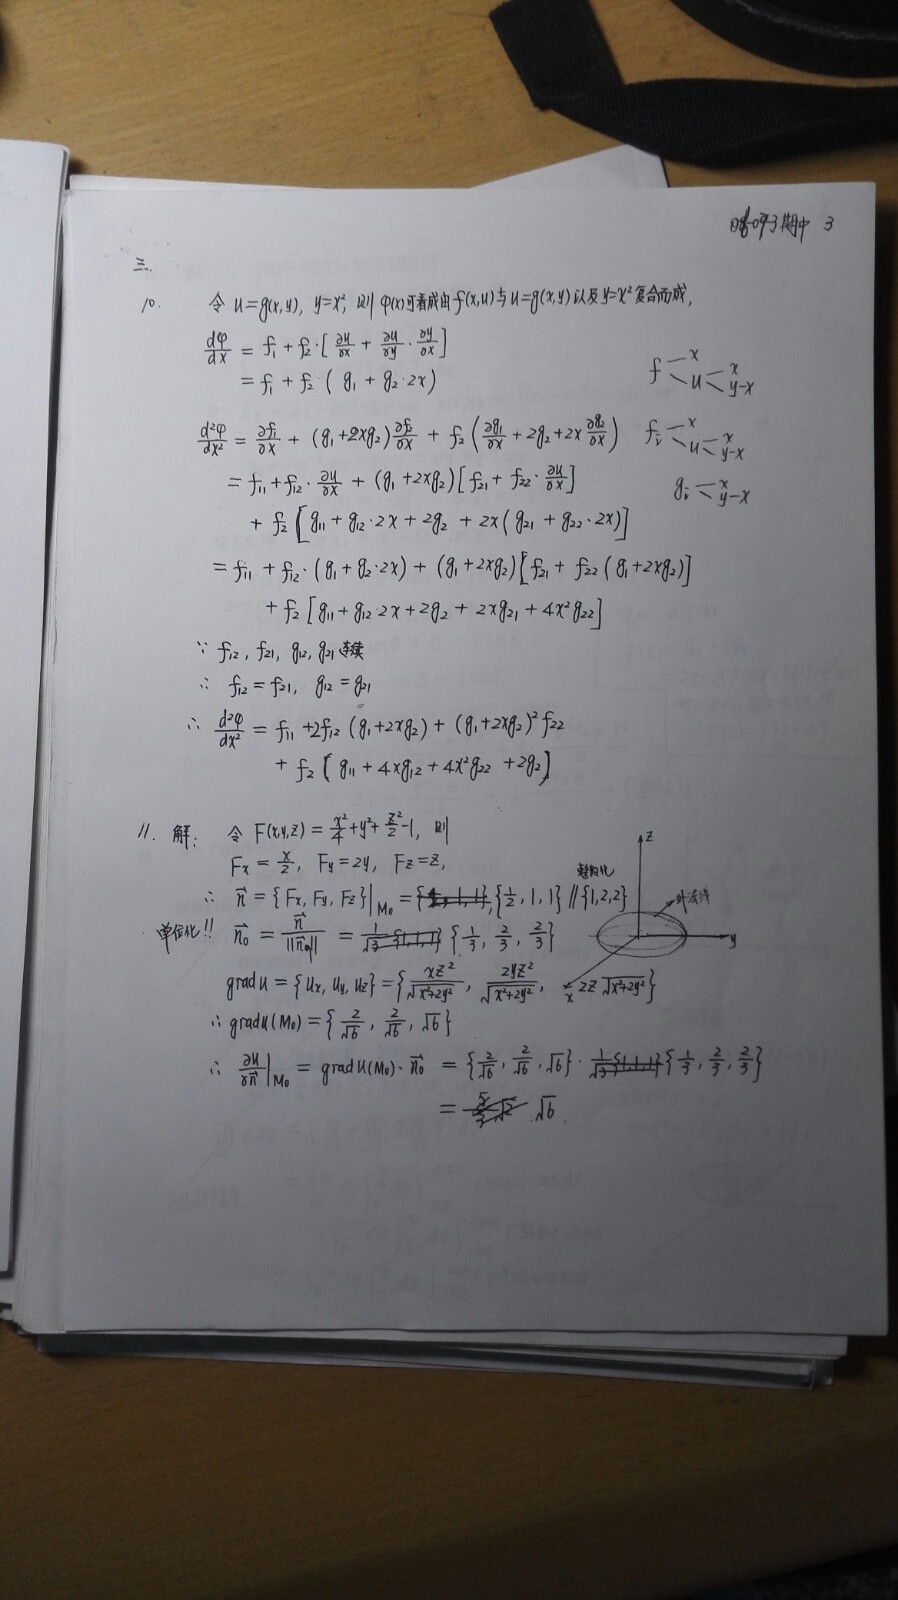 期中 3
三.
10. 令 u=g(x,y), y=x², 则 φ(x)可看成由f(x,u)与u=g(x,y)以及y=x²复合而成,
dφ/dx = f₁ + f₂·[∂u/∂x + ∂u/∂y · ∂y/∂x]
= f₁ + f₂·(g₁ + g₂·2x)
f x u x y-x
d²φ/dx² = ∂f₁/∂x + (g₁+2xg₂)∂f₂/∂x + f₂(∂g₁/∂x + 2g₂ + 2x ∂g₂/∂x)
fᵢ x u x y-x
= f₁₁ + f₁₂·∂u/∂x + (g₁+2xg₂)[f₂₁ + f₂₂·∂u/∂x]
gᵢ x y-x
+ f₂[g₁₁ + g₁₂·2x + 2g₂ + 2x(g₂₁ + g₂₂·2x)]
= f₁₁ + f₁₂·(g₁+g₂·2x) + (g₁+2xg₂)[f₂₁ + f₂₂(g₁+2xg₂)]
+ f₂[g₁₁ + g₁₂·2x + 2g₂ + 2xg₂₁ + 4x²g₂₂]
∵ f₁₂, f₂₁, g₁₂, g₂₁连续
∴ f₁₂ = f₂₁, g₁₂ = g₂₁
∴ d²φ/dx² = f₁₁ + 2f₁₂(g₁+2xg₂) + (g₁+2xg₂)²f₂₂
+ f₂[g₁₁ + 4xg₁₂ + 4x²g₂₂ + 2g₂]
11. 解: 令 F(x,y,z) = x²/4 + y² + z²/2 - 1, 则
Fx = x/2, Fy = 2y, Fz = z,
∴ n⃗ = {Fx, Fy, Fz}|M₀ = {1/2, 1, 1} // {1,2,2}
整数化
外法线
z
y
x
单位化!! n⃗₀ = n⃗/||n⃗₀|| = {1/3, 2/3, 2/3}
grad u = {ux, uy, uz} = {xz²/√(x²+2y²), 2yz²/√(x²+2y²), 2z√(x²+2y²)}
∴ grad u(M₀) = {2/√6, 2/√6, √6}
∴ ∂u/∂n⃗|M₀ = grad u(M₀)·n⃗₀ = {2/√6, 2/√6, √6}·{1/3, 2/3, 2/3}
= √6.